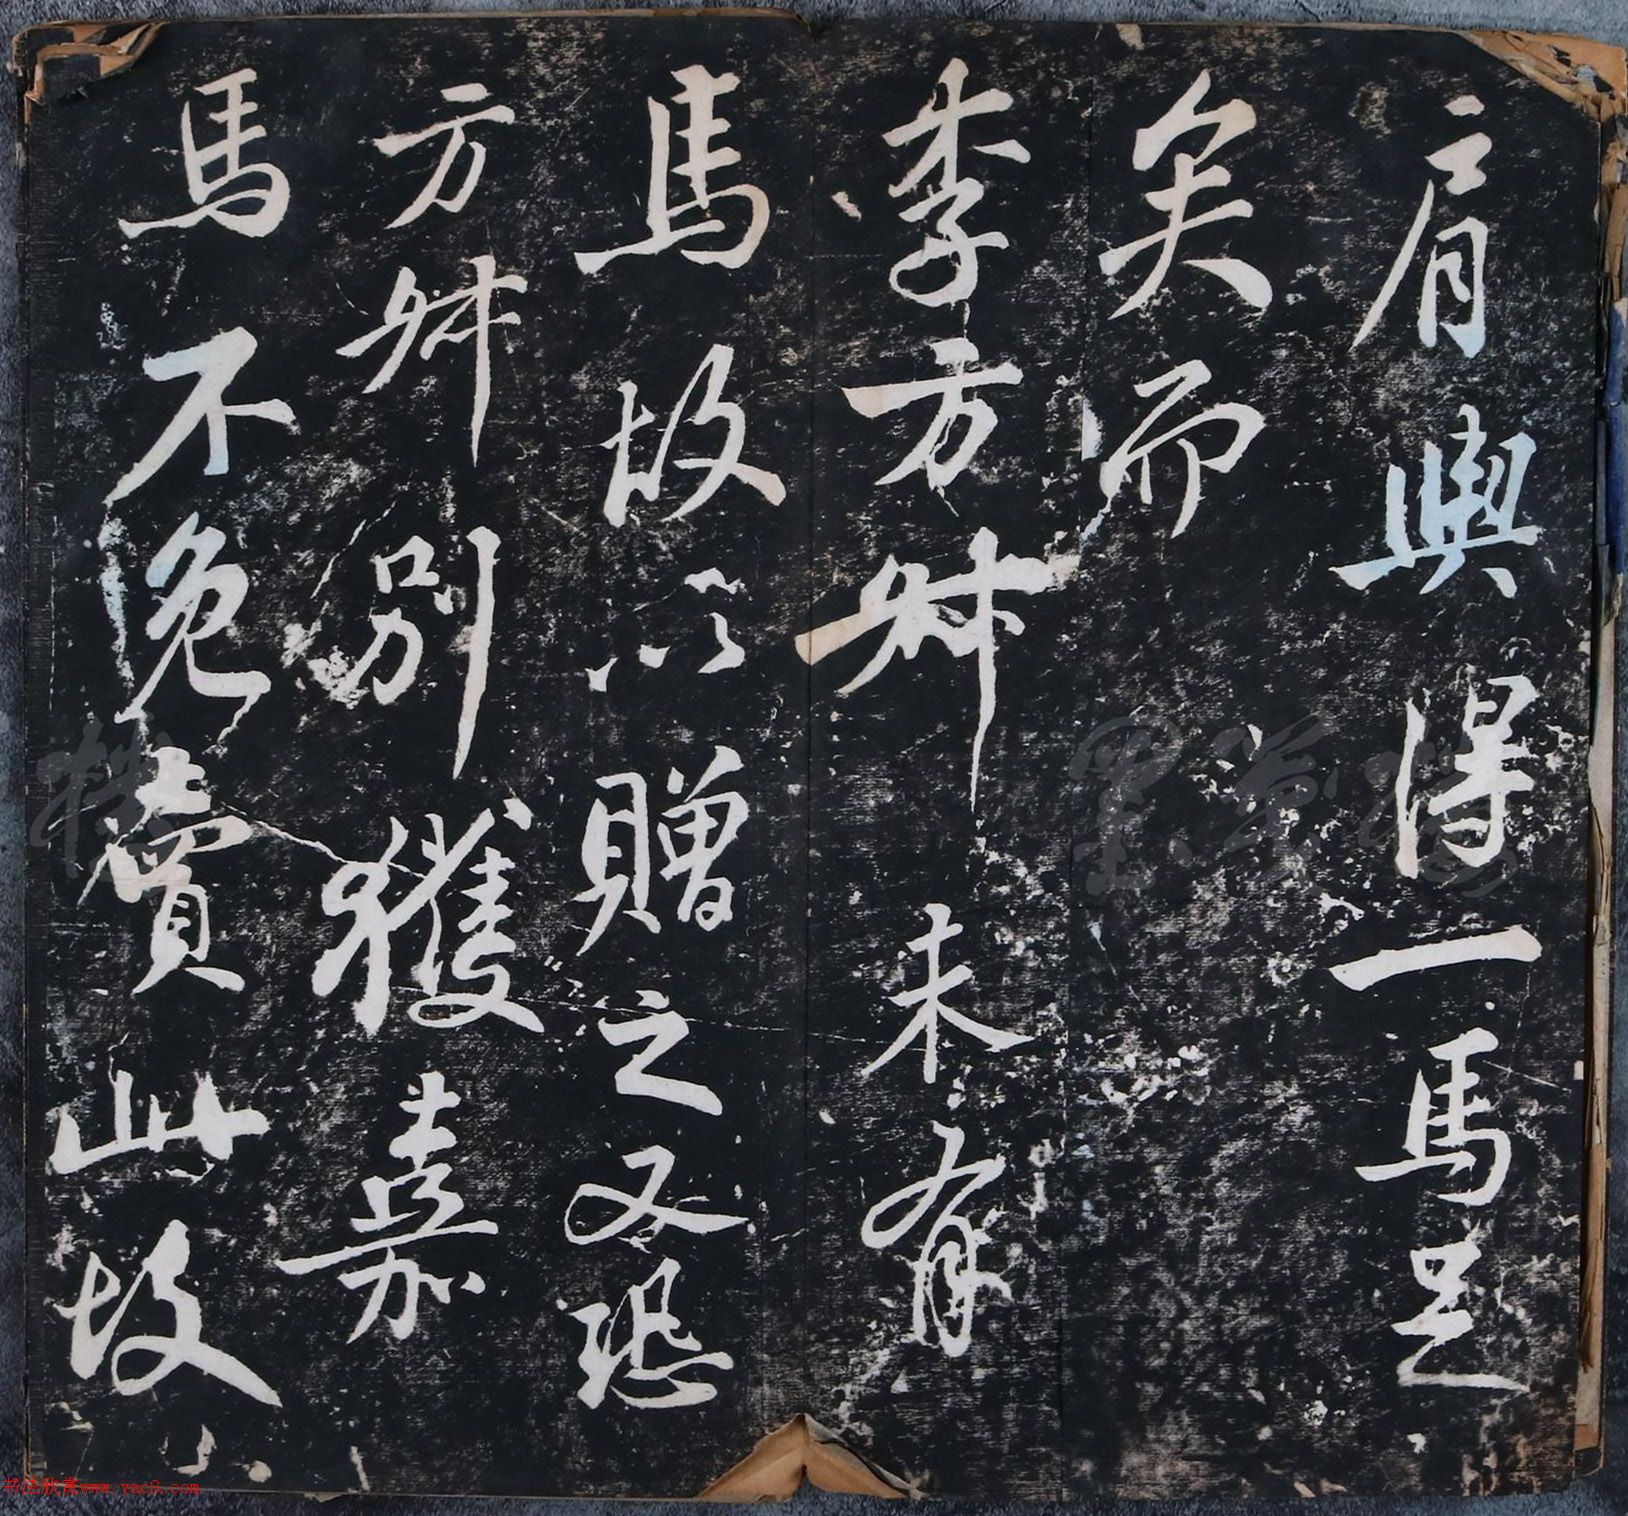 肩輿得一馬足
矣而
李方叔未有
馬故以贈之又恐
方叔別獲嘉
馬不免賣此故
书法欣赏www.yac8.com